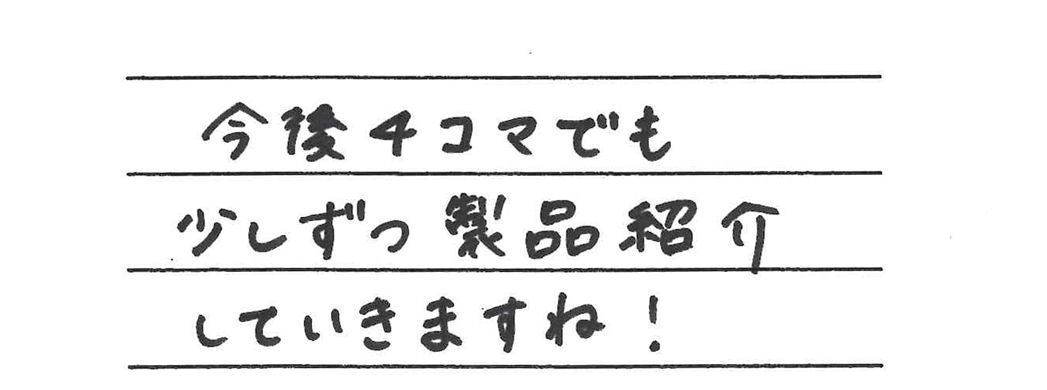 今後4コマでも
少しずつ製品紹介
していきますね!